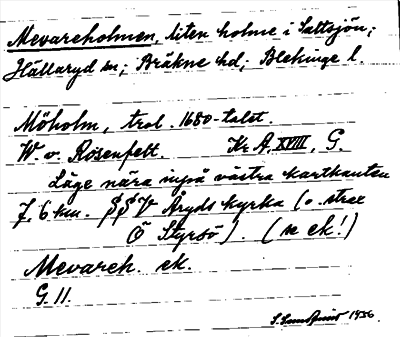 Mevareholmen, liten holme i Saltsjön;
Hällaryd sn; Bräkne hd; Blekinge l.
Möholm, trol. 1680-talet.
W. v. Rosenfelt. Kr A, XVIII, G.
Läge nära inpå västra kartkanten
7,6 km. SSV Åryds kyrka (o. strax
Ö Styrsö). (se ek!)
Mevareh. ek.
G. 11.
1936